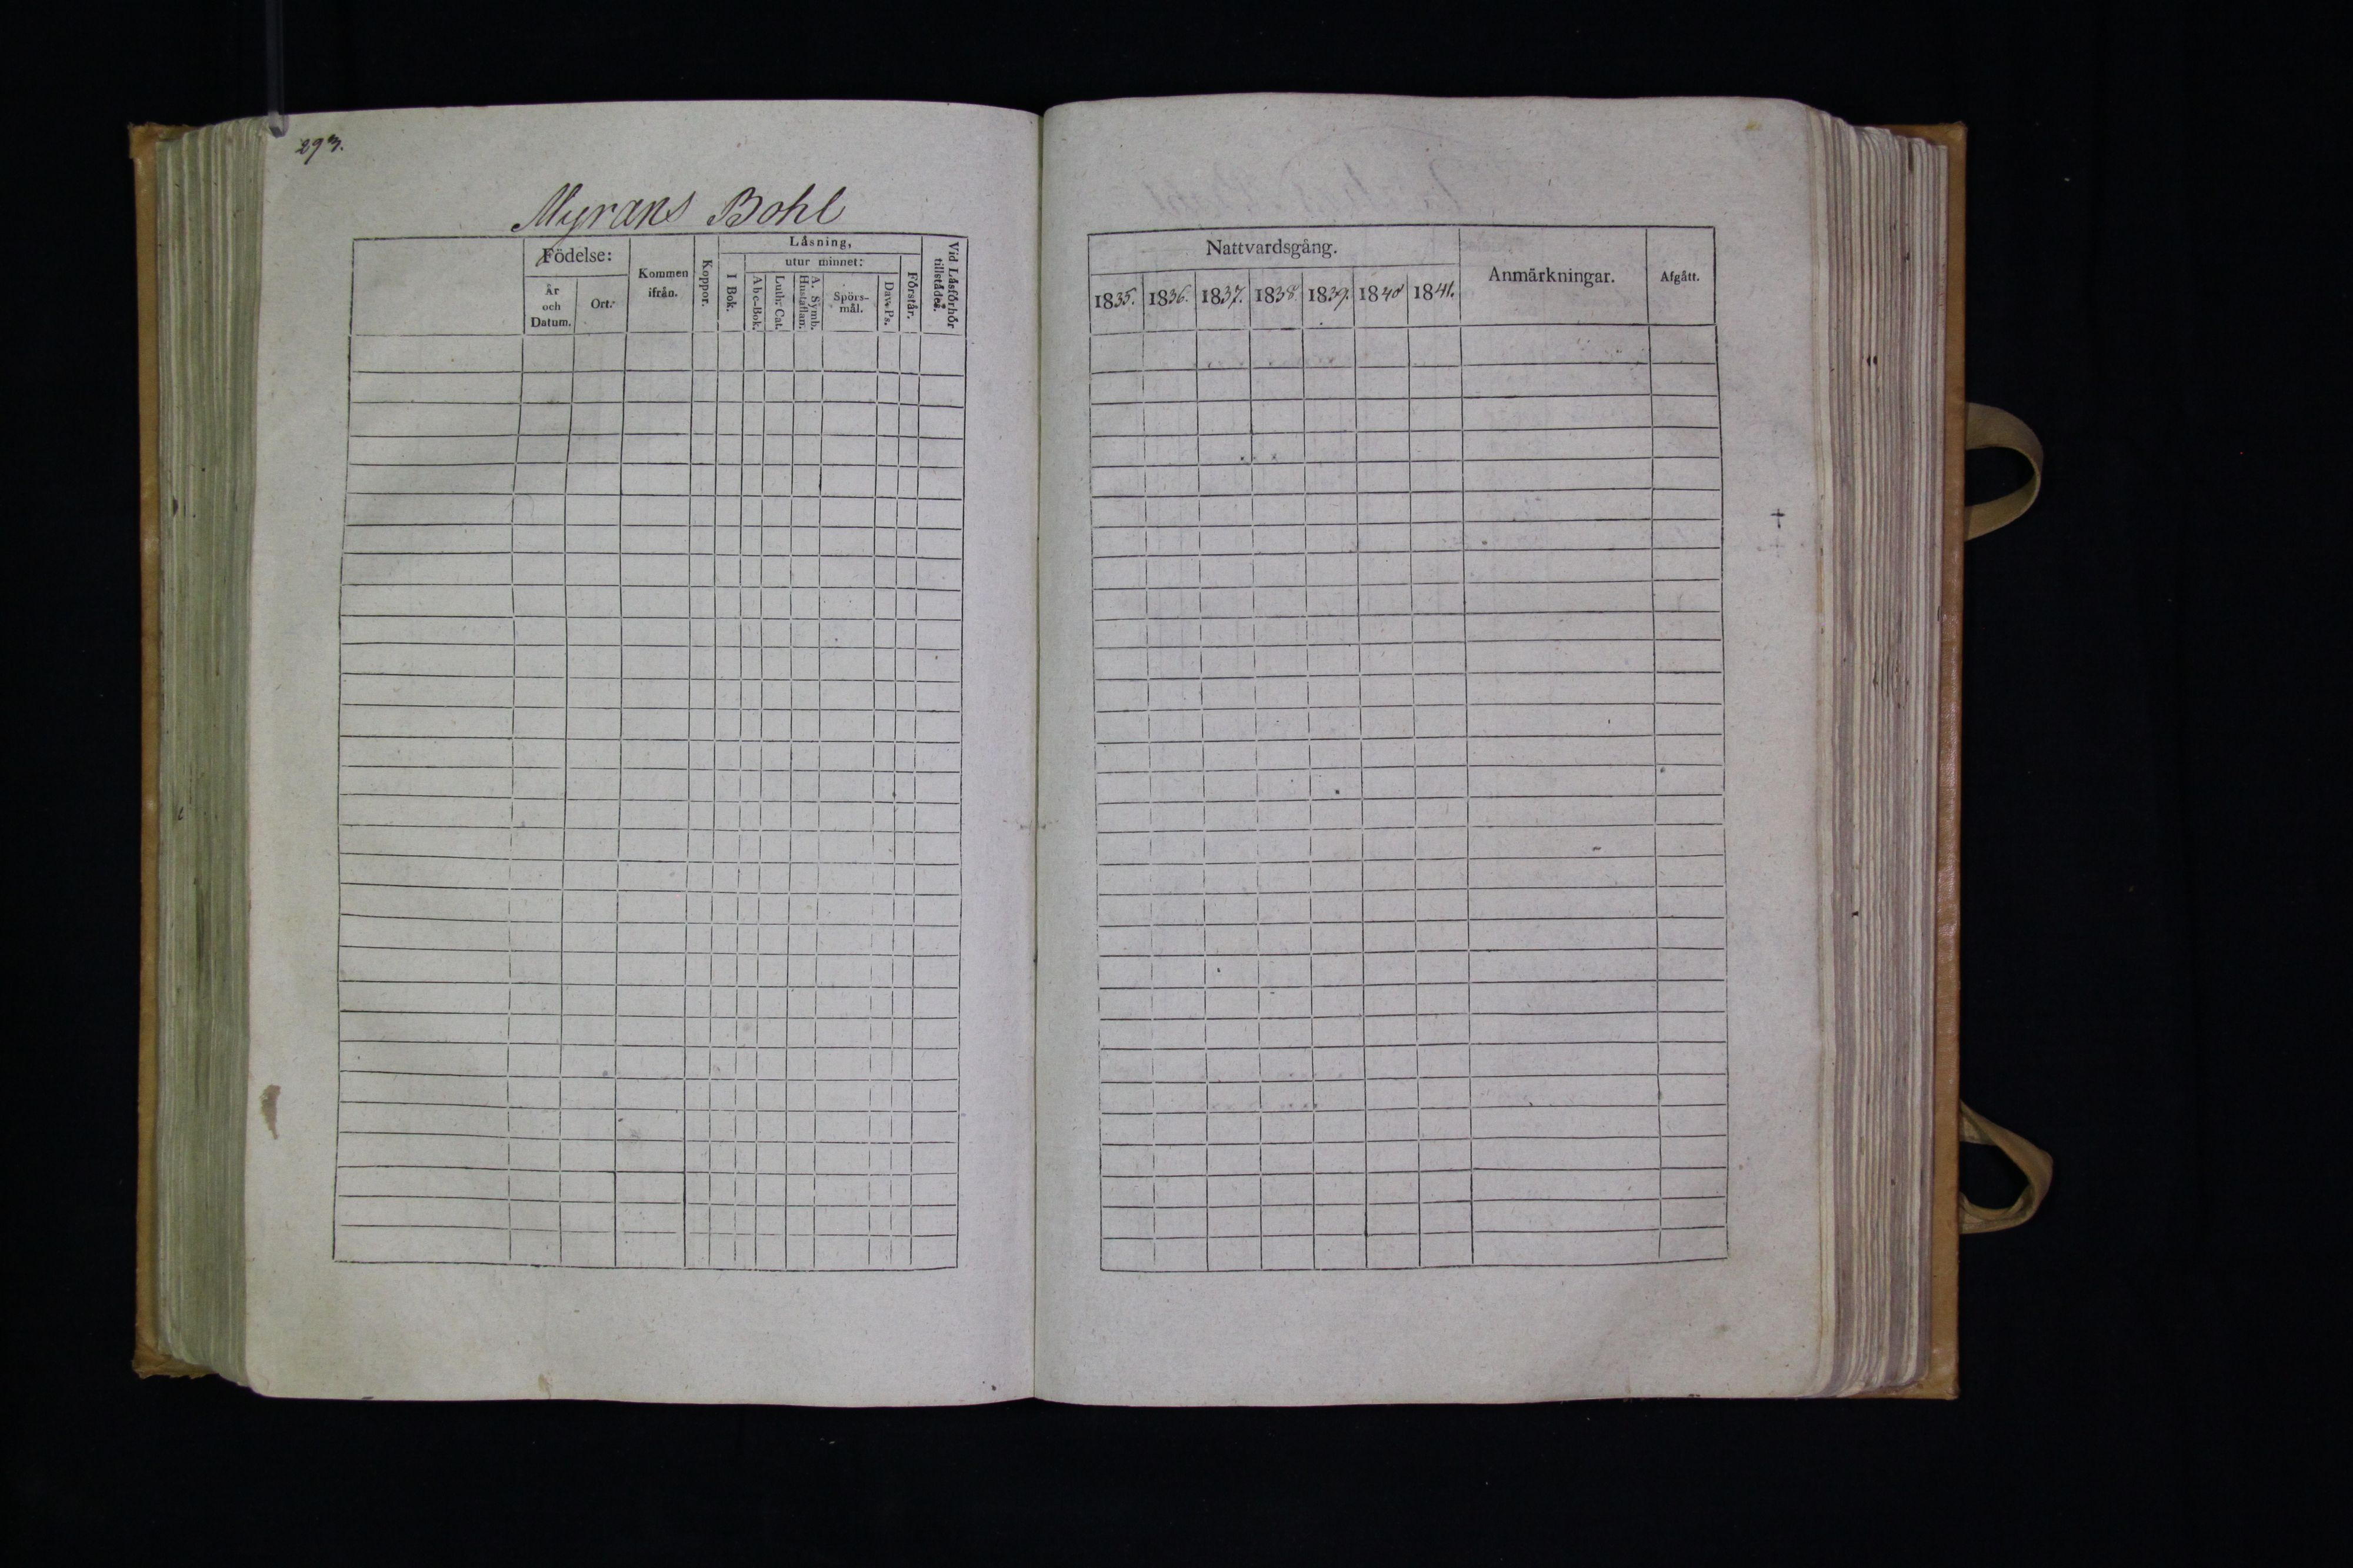 293.
Myrans Bohl
Födelse:
År
och
Datum.
Ort.
Kommen
ifrån.
Koppor.
Läsning,
I Bok.
utur minnet:
Abc-Bok.
Luth. Cat.
A. Symb.
Hustaflan.
Spörs-
mål.
Dav. Ps.
Förstår.
Vid Läsförhör
tillstädes.
Nattvardsgång.
1835. 1836. 1837. 1838. 1839. 1840 1841.
Anmärkningar.
Afgått.